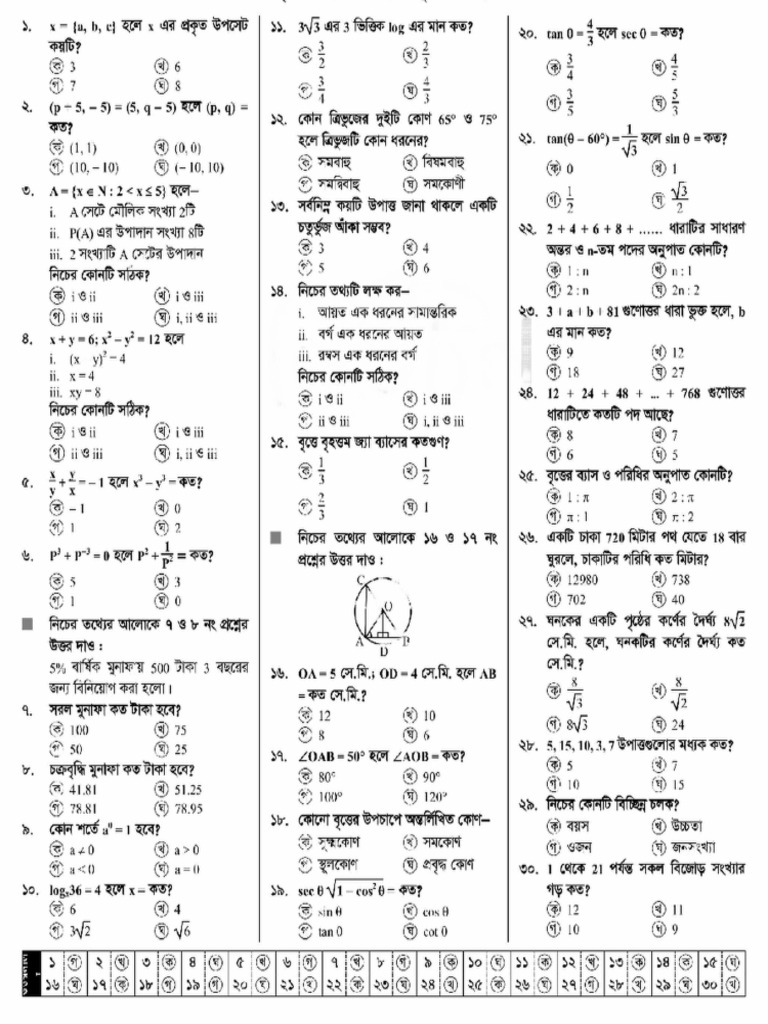 ১. x = {a, b, c} হলে x এর প্রকৃত উপসেট
কয়টি?
ক 3 খ 6
গ 7 ঘ 8
২. (p − 5, − 5) = (5, q − 5) হলে (p, q) =
কত?
ক (1, 1) খ (0, 0)
গ (10, − 10) ঘ (− 10, 10)
৩. A = {x ∈ N : 2 < x ≤ 5} হলে−
i. A সেটে মৌলিক সংখ্যা 2টি
ii. P(A) এর উপাদান সংখ্যা 8টি
iii. 2 সংখ্যাটি A সেটের উপাদান
নিচের কোনটি সঠিক?
ক i ও ii খ i ও iii
গ ii ও iii ঘ i, ii ও iii
৪. x + y = 6; x² − y² = 12 হলে
i. (x y)² = 4
ii. x = 4
iii. xy = 8
নিচের কোনটি সঠিক?
ক i ও ii খ i ও iii
গ ii ও iii ঘ i, ii ও iii
৫. x/y + y/x = − 1 হলে x³ − y³ = কত?
ক − 1 খ 0
গ 1 ঘ 2
৬. P³ + P⁻³ = 0 হলে P² + 1/P² = কত?
ক 5 খ 3
গ 1 ঘ 0
নিচের তথ্যের আলোকে ৭ ও ৮ নং প্রশ্নের
উত্তর দাও :
5% বার্ষিক মুনাফায় 500 টাকা 3 বছরের
জন্য বিনিয়োগ করা হলো।
৭. সরল মুনাফা কত টাকা হবে?
ক 100 খ 75
গ 50 ঘ 25
৮. চক্রবৃদ্ধি মুনাফা কত টাকা হবে?
ক 41.81 খ 51.25
গ 78.81 ঘ 78.95
৯. কোন শর্তে a⁰ = 1 হবে?
ক a ≠ 0 খ a > 0
গ a < 0 ঘ a = 0
১০. logₓ36 = 4 হলে x = কত?
ক 6 খ 4
গ 3√2 ঘ √6
১১. 3√3 এর 3 ভিত্তিক log এর মান কত?
ক 3/2 খ 2/3
গ 3/4 ঘ 4/3
১২. কোন ত্রিভুজের দুইটি কোণ 65° ও 75°
হলে ত্রিভুজটি কোন ধরনের?
ক সমবাহু খ বিষমবাহু
গ সমদ্বিবাহু ঘ সমকোণী
১৩. সর্বনিম্ন কয়টি উপাত্ত জানা থাকলে একটি
চতুর্ভুজ আঁকা সম্ভব?
ক 3 খ 4
গ 5 ঘ 6
১৪. নিচের তথ্যটি লক্ষ কর−
i. আয়ত এক ধরনের সামান্তরিক
ii. বর্গ এক ধরনের আয়ত
iii. রম্বস এক ধরনের বর্গ
নিচের কোনটি সঠিক?
ক i ও ii খ i ও iii
গ ii ও iii ঘ i, ii ও iii
১৫. বৃত্তে বৃহত্তম জ্যা ব্যাসের কতগুণ?
ক 1/3 খ 1/2
গ 2/3 ঘ 1
নিচের তথ্যের আলোকে ১৬ ও ১৭ নং
প্রশ্নের উত্তর দাও :
C
O
A B
D
১৬. OA = 5 সে.মি.; OD = 4 সে.মি. হলে AB
= কত সে.মি.?
ক 12 খ 10
গ 8 ঘ 6
১৭. ∠OAB = 50° হলে ∠AOB = কত?
ক 80° খ 90°
গ 100° ঘ 120°
১৮. কোনো বৃত্তের উপচাপে অন্তর্লিখিত কোণ−
ক সূক্ষ্মকোণ খ সমকোণ
গ স্থূলকোণ ঘ প্রবৃদ্ধ কোণ
১৯. sec θ √1 − cos²θ = কত?
ক sin θ খ cos θ
গ tan θ ঘ cot θ
২০. tan θ = 4/3 হলে sec θ = কত?
ক 3/4 খ 4/5
গ 3/5 ঘ 5/3
২১. tan(θ − 60°) = 1/√3 হলে sin θ = কত?
ক 0 খ 1
গ 1/2 ঘ √3/2
২২. 2 + 4 + 6 + 8 + ...... ধারাটির সাধারণ
অন্তর ও n-তম পদের অনুপাত কোনটি?
ক 1 : n খ n : 1
গ 2 : n ঘ 2n : 2
২৩. 3 + a + b + 81 গুণোত্তর ধারা ভুক্ত হলে, b
এর মান কত?
ক 9 খ 12
গ 18 ঘ 27
২৪. 12 + 24 + 48 + ... + 768 গুণোত্তর
ধারাটিতে কতটি পদ আছে?
ক 8 খ 7
গ 6 ঘ 5
২৫. বৃত্তের ব্যাস ও পরিধির অনুপাত কোনটি?
ক 1 : π খ 2 : π
গ π : 1 ঘ π : 2
২৬. একটি চাকা 720 মিটার পথ যেতে 18 বার
ঘুরলে, চাকাটির পরিধি কত মিটার?
ক 12980 খ 738
গ 702 ঘ 40
২৭. ঘনকের একটি পৃষ্ঠের কর্ণের দৈর্ঘ্য 8√2
সে.মি. হলে, ঘনকটির কর্ণের দৈর্ঘ্য কত
সে.মি.?
ক 8/√3 খ 8/√2
গ 8√3 ঘ 24
২৮. 5, 15, 10, 3, 7 উপাত্তগুলোর মধ্যক কত?
ক 5 খ 7
গ 10 ঘ 15
২৯. নিচের কোনটি বিচ্ছিন্ন চলক?
ক বয়স খ উচ্চতা
গ ওজন ঘ জনসংখ্যা
৩০. 1 থেকে 21 পর্যন্ত সকল বিজোড় সংখ্যার
গড় কত?
ক 12 খ 11
গ 10 ঘ 9
১ গ ২ খ ৩ ক ৪ ঘ ৫ খ ৬ গ ৭ খ ৮ গ ৯ ক ১০ ঘ ১১ ক ১২ খ ১৩ গ ১৪ ক ১৫ ঘ
১৬ ঘ ১৭ ক ১৮ গ ১৯ গ ২০ ঘ ২১ খ ২২ ক ২৩ ঘ ২৪ খ ২৫ ক ২৬ ঘ ২৭ গ ২৮ খ ২৯ ঘ ৩০ খ